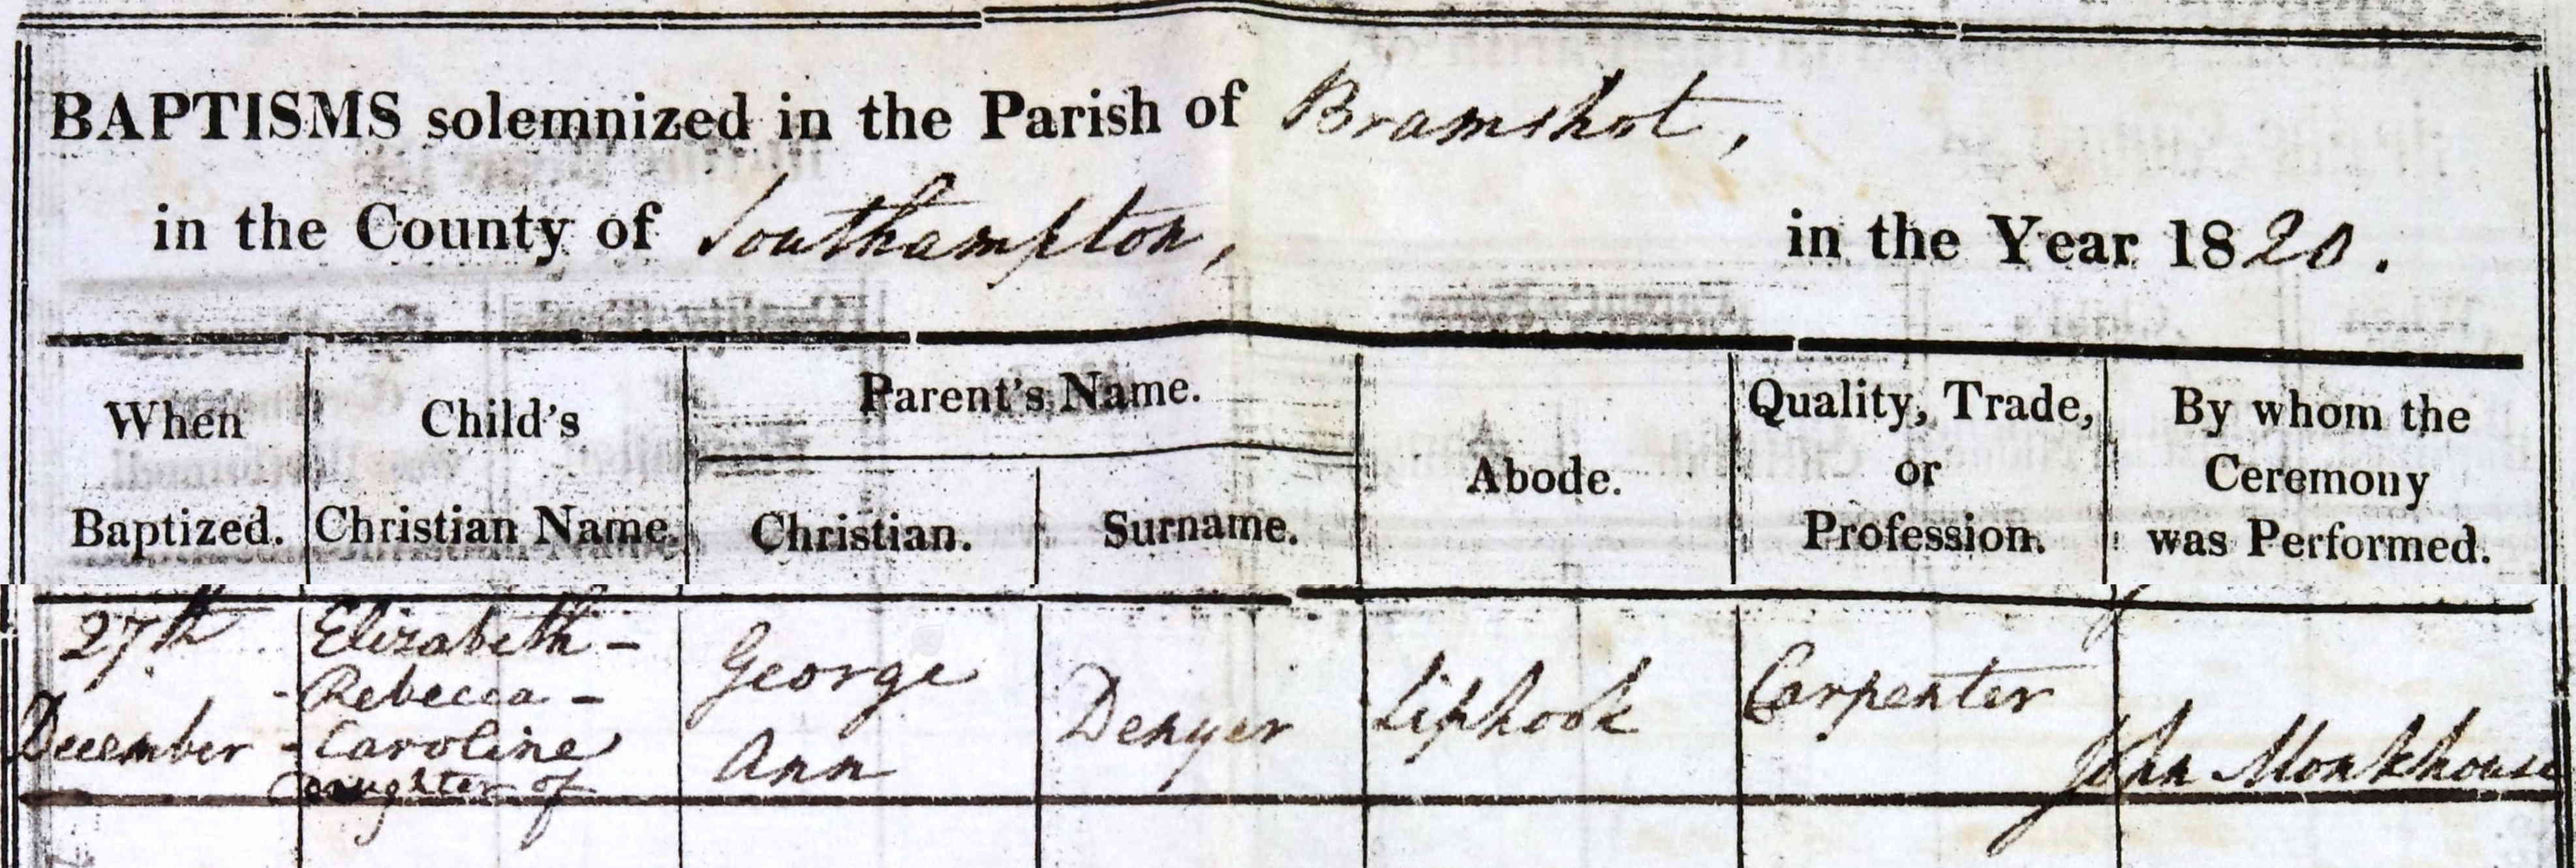 BAPTISMS solemnized in the Parish of Bramshot,
in the County of Southampton, in the Year 1820.
When
Baptized.
Child's
Christian Name.
Parent's Name.
Christian.
Surname.
Abode.
Quality, Trade,
or
Profession.
By whom the
Ceremony
was Performed.
27th
December
Elizabeth -
- Rebecca -
- Caroline
Daughter of
George
Ann
Denyer
Liphook
Carpenter
John Monkhouse